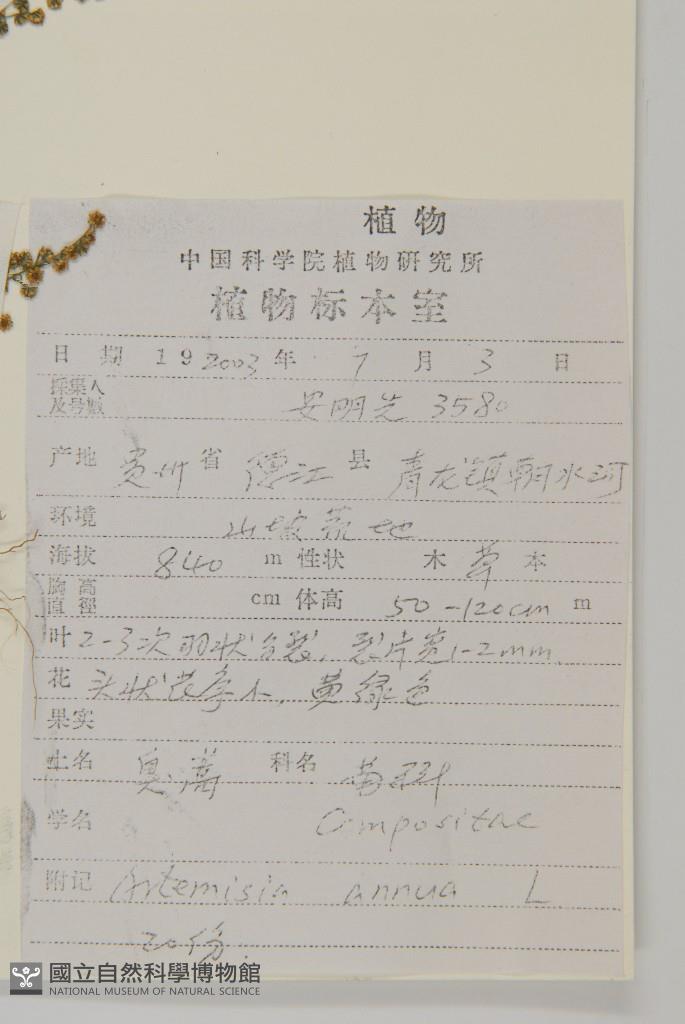 植物
中国科学院植物研究所
植物标本室
日 期 19 2003 年 7 月 3 日
採集人及号数 安明先 3580
产地 贵州 省 德江 县 青龙镇朝水河
环境 山坡荒地
海拔 840 m 性状 木 草 本
胸高直徑 cm 体高 50-120cm m
叶 2-3次羽状全裂，裂片宽1-2mm.
花 头状花序小，黄绿色
果实
土名 臭蒿 科名 菊科
学名 Compositae
附记 Artemisia annua L
20份.
國立自然科學博物館
NATIONAL MUSEUM OF NATURAL SCIENCE